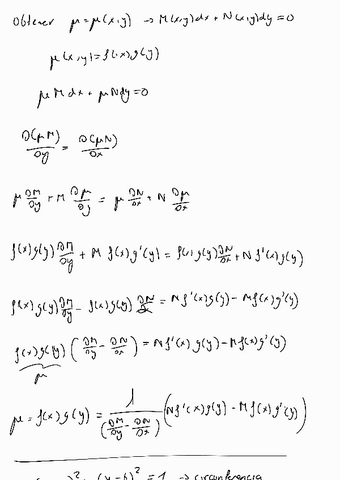 Obtener μ=μ(x,y) → M(x,y)dx + N(x,y)dy=0
μ(x,y)=f(x)g(y)
μMdx + μNdy=0
∂(μM)/∂y = ∂(μN)/∂x
μ ∂M/∂y + M ∂μ/∂y = μ ∂N/∂x + N ∂μ/∂x
f(x)g(y) ∂M/∂y + M f(x)g'(y) = f(x)g(y) ∂N/∂x + N f'(x)g(y)
f(x)g(y) ∂M/∂y - f(x)g(y) ∂N/∂x = N f'(x)g(y) - M f(x)g'(y)
f(x)g(y) (∂M/∂y - ∂N/∂x) = N f'(x)g(y) - M f(x)g'(y)
μ
μ = f(x)g(y) = 1/(∂M/∂y - ∂N/∂x) (N f'(x)g(y) - M f(x)g'(y))
)² + (y-b)² = 1 → circunferencia